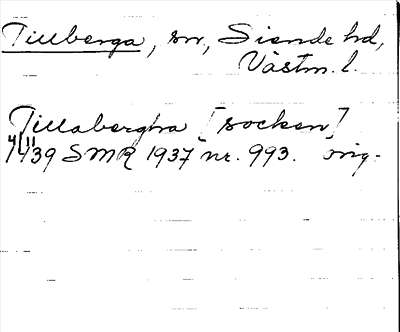 Tillberga, sn, Siende hd,
Västm. l.
Tillabergha [socken]
4/11 1439 SMR 1937 nr. 993. orig.